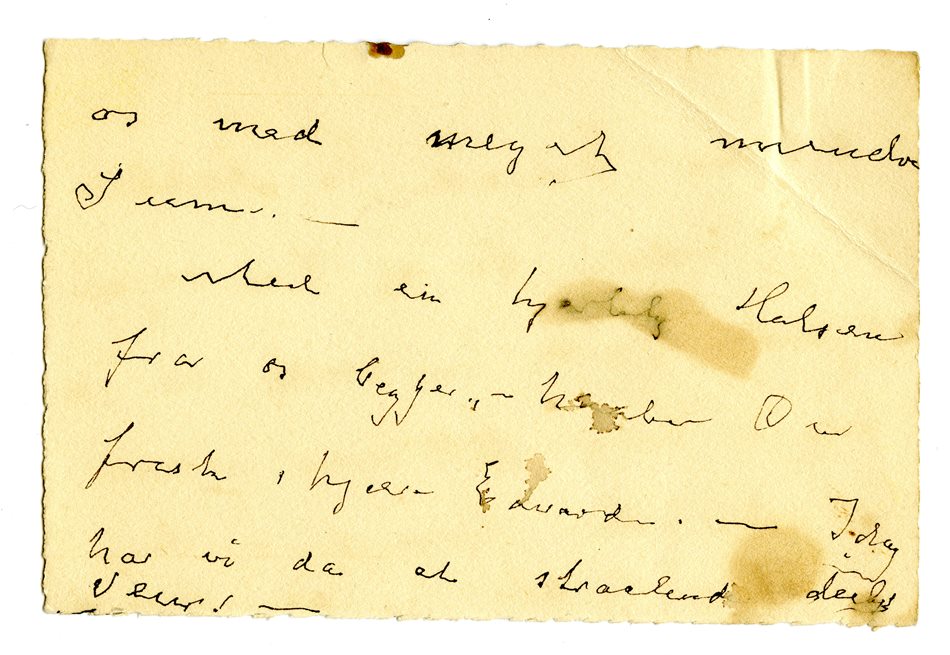 os med meget
med en hjertelig Hilsen
fra os begge, - haaber De er
frisk, kjære Edvard. — Idag
har vi da et straalende deilig
Veir! —